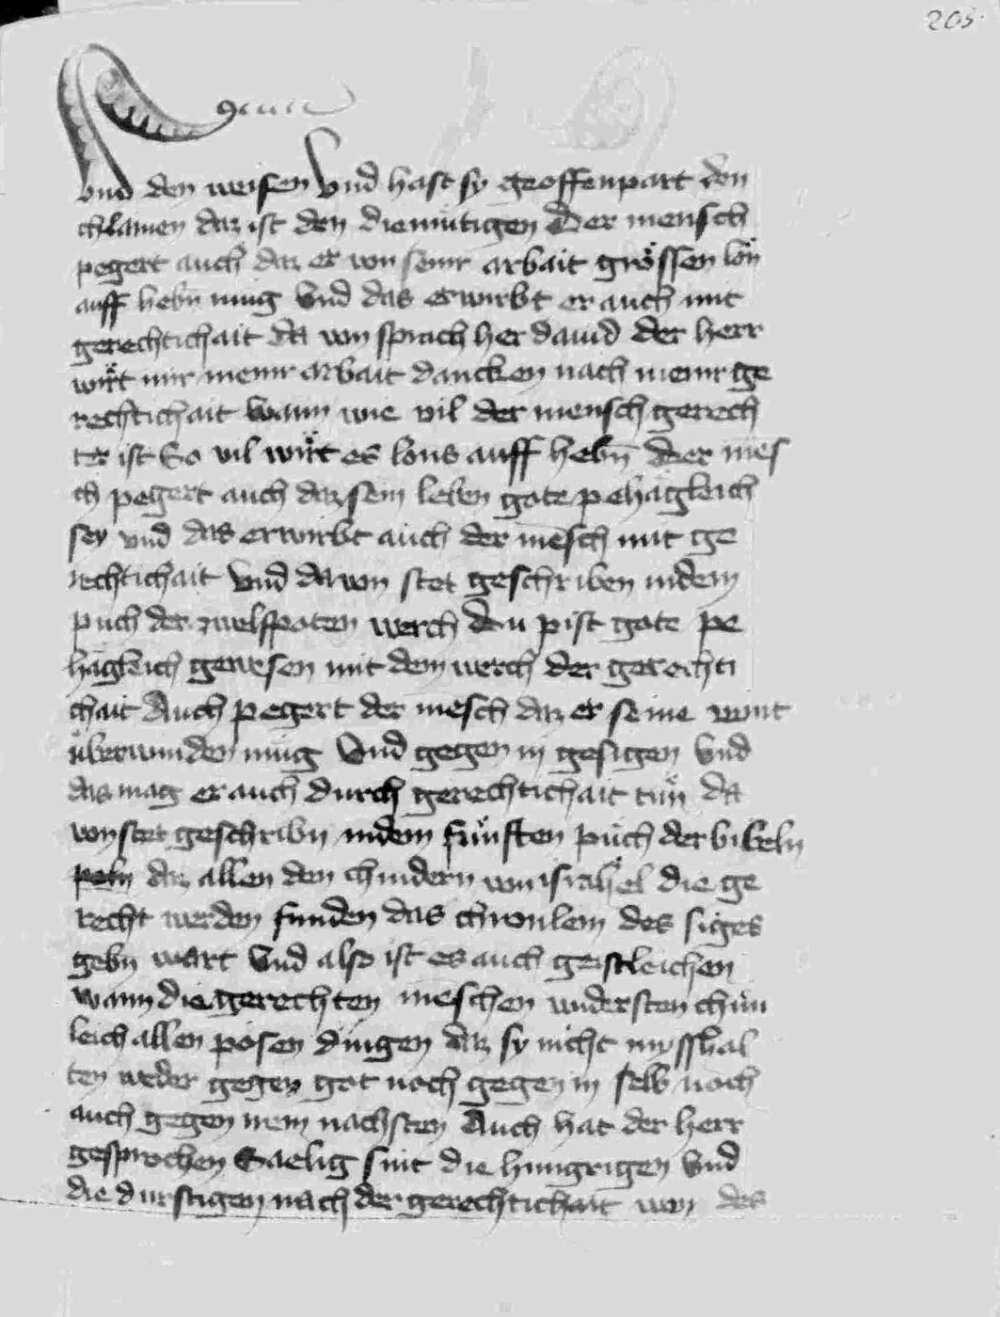 205
vnd den weisen vnd hast sy geoffenpart den
chlainen daz ist den diemütigen Der mensch
pegert auch daz er von seinr arbait grössen lön
auff hebn müg Vnd das erwirbt er auch mit
gerechtichait da von sprach her dauid der herr
wirt mir meinr arbait dancken nach meinr ge
rechtichait wann wie vil der mensch gerech
ter ist So vil wirt er lons auff hebn Der mēs
ch pegert auch daz sein leben gote pehägleich
sey vnd das erwirbt auch der mēsch mit ge
rechtichait Vnd da von stet geschriben in dem
puch der zwelfpoten werch Du pist gote pe
hägleich gewesen mit dem werch der gerechti
chait Auch pegert der mēsch daz er seine veint
überwinden müg Vnd gegen in gesigen Vnd
das mag er auch durch gerechtichait tün da
von stet geschribn in dem fünften püch der bibeln
peln daz allen den chindern von israhel die ge
recht werden funden das chronlein des siges
gebn wart Vnd also ist es auch geistleichen
wann die gerechten meschen widersten chün
leich allen pösen dingen daz sy nicht mysshal
ten weder gegen got noch gegen in selb noch
auch gegen irem nachsten Auch hat der herr
gesprochen Saelig sint die hungrigen Vnd
die durstigen nach der gerechtichait von des